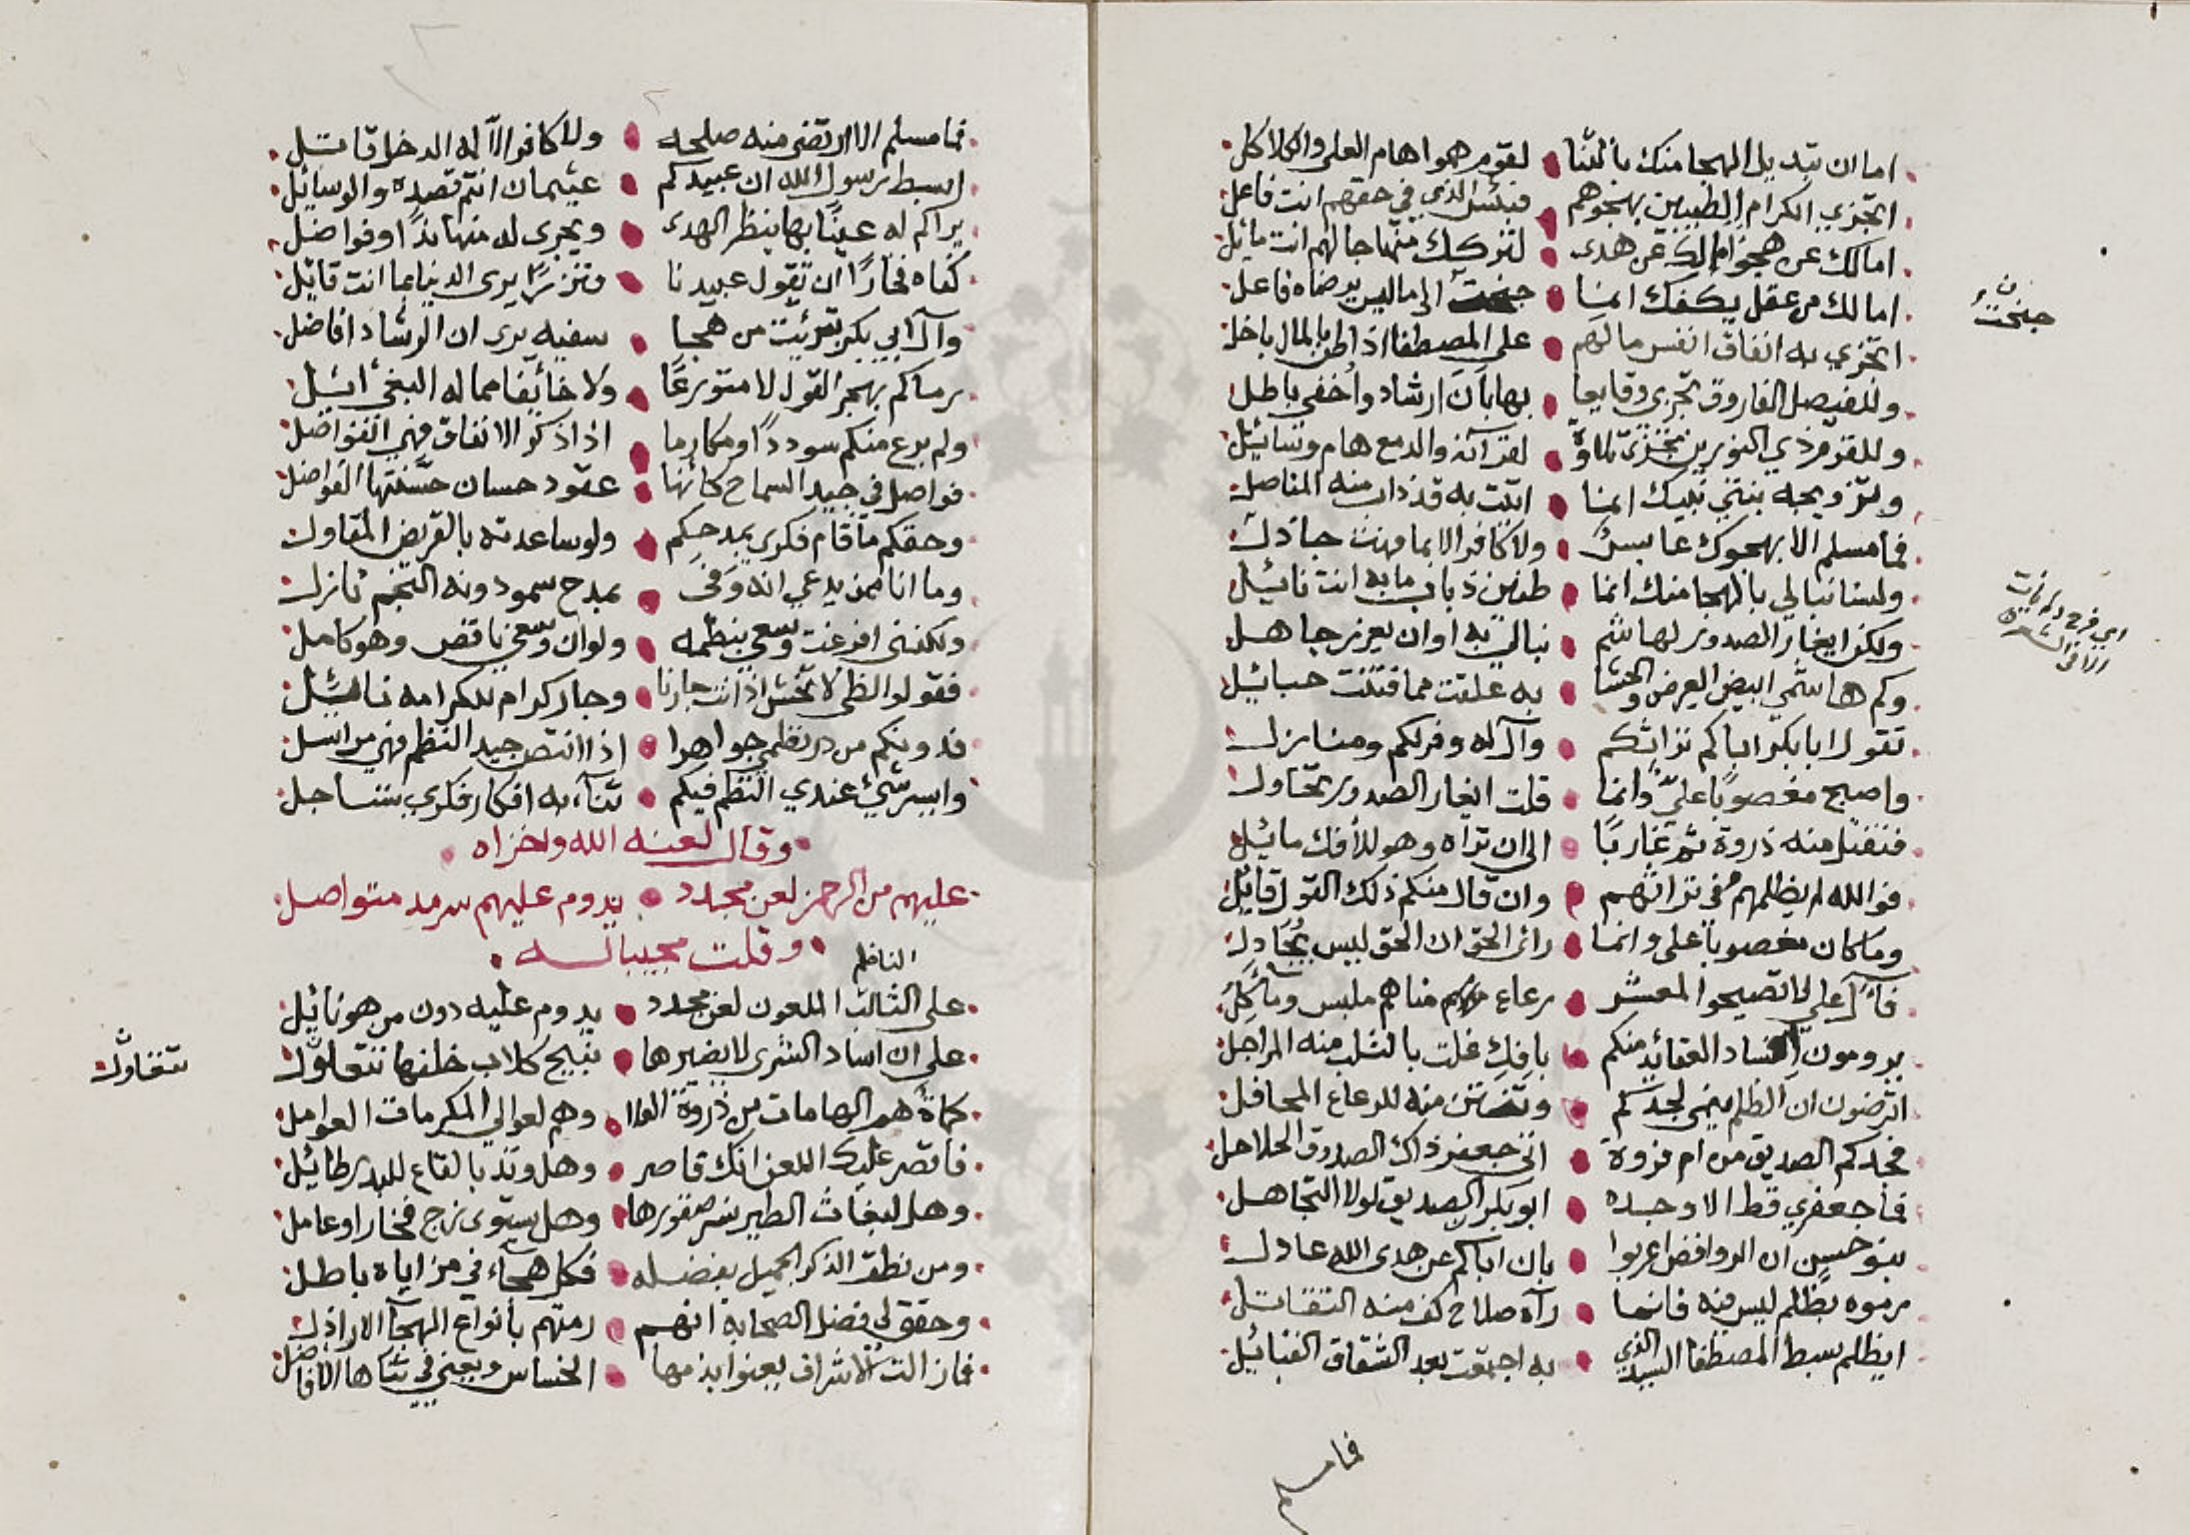 اما ان تبديل الهجا منك بالثنا لقوم هموا هام العلى والكلاكل
اتجزي الكرام الطيبين بهجوهم فبئس الذي في حقهم انت فاعل
امالك عن هجو امالك عن هدى لتركك منهاجا لهم انت مايل
امالك من عقل يكفك انما جنحت الى ما ليس يرضاه فاعل
جنحت
اتجزي به انفاق انفس مالهم على المصطفا اذ بالمال باخل
وللفيصل الفاروق تجزي وقايعا بها بان ارشاد واخفي باطل
وللقرم ذي النورين تجزى تلاوة لقرآنه والدمع هام وسائيل
وتزويجه بنتي نبيك انما اتت به قد ذاب منه المناصل
فما مسلم الا بهجوك عابس ولا كافر الا بما فهت جاذل
ولسنا نبالي بالهجا منك انما طنين ذباب ما به انت نائيل
ولكن ايغار الصدور لهاشم نبالي به او ان يعزر جاهل
وكم هاشمي ابيض العرض والحشا به علقت مما فتلت حبائيل
تقول ابا بكر اباكم تراثكم وآل له وفر لكم ومنازل
واصبح مغصوبا علي وانما قلت ايغار الصدور تحاول
فتفتل منه ذروة ثم غاربا الى ان تراه وهو للأفك مائيل
فوالله لم يظلمهم في تراثهم وان قال منكم ذلك القول قائيل
وما كان مغصوبا علي وانما رأى الحق ان الحق ليس يجادل
فآل علي لا تصيحوا لمعشر رعاع مناهم ملبس ومآكل
يرومون افساد العقائد منكم بافك غلت بالثلب منه المراجل
اترضون ان الظلم ينمى لجدكم وتنتن منه للرعاع المحافل
فجدكم الصديق من ام فروة اتى جعفر ذاك الصدوق الحلاحل
فما جعفري قط الا وجده ابو بكر الصديق لولا التجاهل
بنو حسين ان الروافض اعربوا بان اباكم عن هدى الله عادل
رموه بظلم ليس فيه فانما رآه صلاح كف منه التقاتل
ايظلم سبط المصطفا السيد الذي به اجتمعت بعد الشقاق القبائيل
فما مسلم
فما مسلم الا ارتضى منه صلحه ولا كافر الا له الدخل قاتل
اسبط رسول الله ان عبيدكم عثيمان انتم قصده والوسائيل
يراكم له عينا بها ينظر الهدى ويجرى له منها ندا وفواضل
كفاه فخارا ان تقول عبيدنا يرى الدنيا بما انت قائيل
وآل ابي بكر تبرئيت من هجا سفيه يرى ان الرشاد افاضل
رماكم بهجر القول لا متورعا ولا خائفا مما له البغي ائيل
ولم يرع منكم سوددا ومكارما اذا ذكر الانفاق فهي الفواضل
فواصل في جيد السماح كأنها عقود حسان حسنتها الفواصل
وحقكم ما قام فكري بمدحكم ولو ساعدته بالقريض المقاول
وما انا ممن يدعي انه وفى بمدح سمو دونه النجم نازل
ولكنني افرغت وسعي بنظمه ولو ان وسعي ناقص وهو كامل
فقولوا لظى لا تخش اذ انت جارنا وجار كرام للكرامه نائيل
فدونكم من در نظمي جواهرا اذا انتص جيد النظم فهي مراسل
وايسر شيء عندي النظم فيكم ثناء به افكار فكري تساجل
وقال لعنه الله واخزاه
عليهم من الرحمن لعن مجدد يدوم عليهم سرمد متواصل
وقلت مجيبا له
الناظم
على الثالب الملعون لعن مجدد يدوم عليه دون من هو نائيل
على ان اساد الشرى لا يضيرها نبيح كلاب خلفها تتعاول
كماة هم الهامات من ذروة العلا وهم لعوالي المكرمات العوامل
فاقصر عليك اللعن انك قاصر وهل وتد بالقاع للبدر طائيل
وهل لبغاث الطير نسر صقورها وهل يستوي زج فخارا وعامل
ومن نطق الذكر الجميل بفضله فكل هجاء في مزاياه باطل
وحقق لي فضل الصحابة انهم رمتهم بأنواع الهجآ الاراذل
فما زالت الاشراف يعنوا بذمها الخساس ويعني في ثناها الافاضل